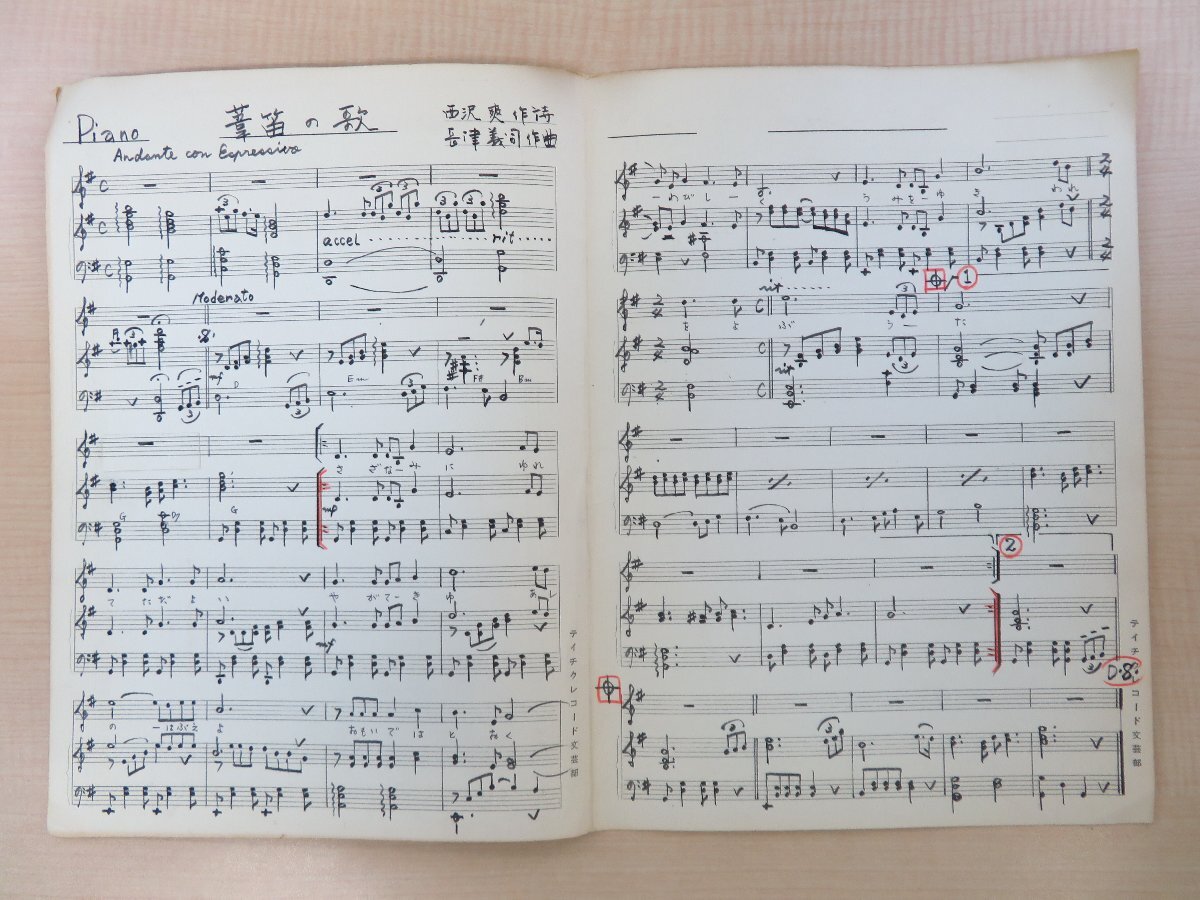 Piano
葦笛の歌
西沢 爽 作詩
長津義司 作曲
Andante con Espressivo
3 3 3 3 3
accel rit
Moderato
3
mf D 3 Em 3 F# Bm
さざなーみ に ゆれ
mp
G D7 G
てただよ い や がてーき ゆ あし
mf
の ーはぶえ よ おもいで は と おく
テイチクレコード文芸部
ーわびしー く うみをーゆ き われ
2/4
rit 1
3
をよ ぶ うー た
rit
2
D.S.
3 3 3
テイチ コード文芸部